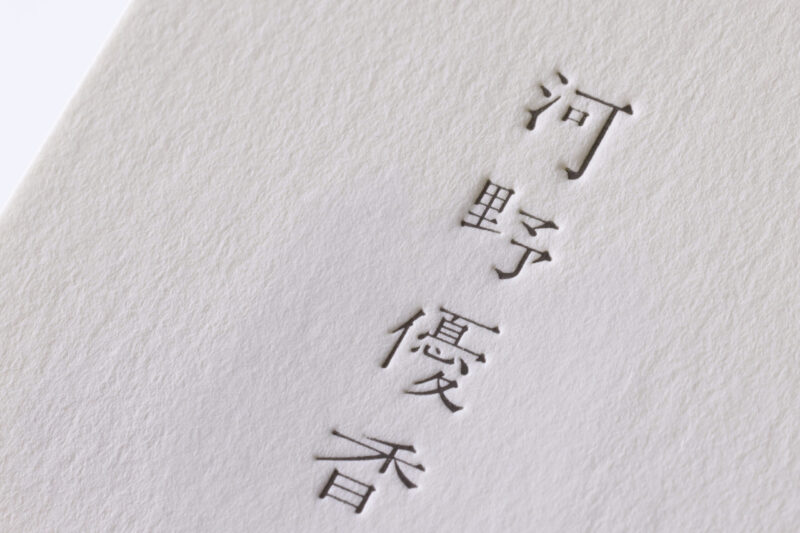 河野優香